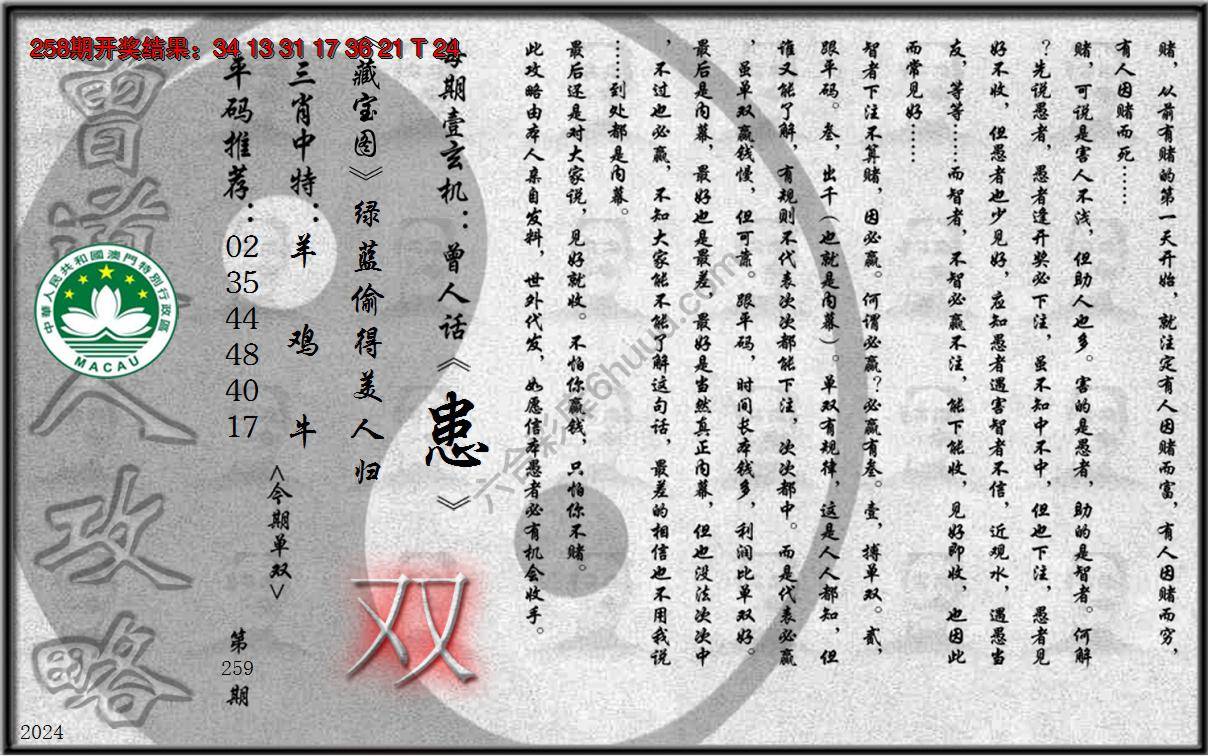 258期开奖结果：34 13 31 17 36 21 T 24
赌，从前有赌的第一天开始，就注定有人因赌而富，有人因赌而穷，
有人因赌而死……
赌，可说是害人不浅，但助人也多。害的是愚者，助的是智者。何解
？先说愚者，愚者逢开奖必下注，虽不知中不中，但也下注，愚者见
好不收，但愚者也少见好，应知愚者遇害智者不信，近观水，遇愚当
友，等等……而智者，不智必赢不注，能下能收，见好即收，也因此
而常见好……
智者下注不算赌，因必赢。何谓必赢？必赢有叁。壹，搏单双。贰，
跟平码。叁，出千（也就是内幕）。单双有规律，这是人人都知，但
谁又能了解，有规则不代表次次都能下注，次次都中。而是代表必赢
，虽单双赢钱慢，但可靠。跟平码，时间长本钱多，利润比单双好。
最后是内幕，最好也是最差，最好是当然真正内幕，但也没法次次中
，不过也必赢，不知大家能不能了解这句话，最差的相信也不用我说
……到处都是内幕。
最后还是对大家说，见好就收。不怕你赢钱，只怕你不赌。
此攻略由本人亲自发料，世外代发，如愿信本愚者必有机会收手。
每期壹玄机：曾人话《患》
《藏宝图》绿蓝偷得美人归
三肖中特：羊 鸡 牛
平码推荐：02 35 44 48 40 17
<今期单双>
双
第259期
曾道人攻略
中華人民共和國澳門特別行政區
MACAU
六合彩库6huu.com
2024